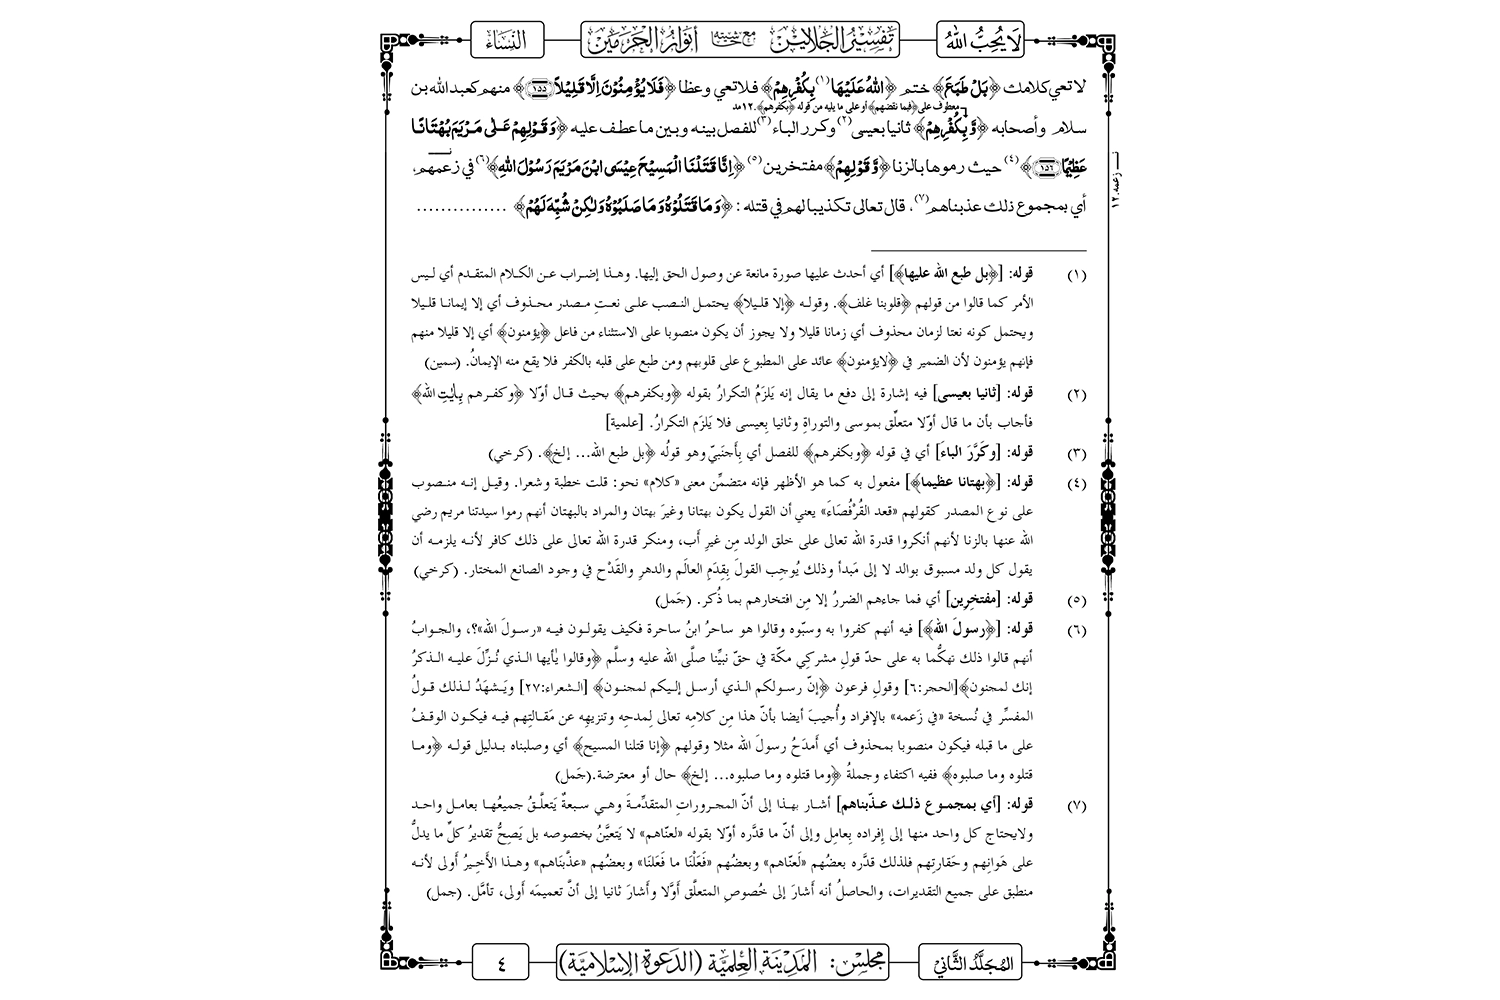 لَا يُحِبُّ اللهُ
تَفْسِيْرُ الْجَلَالَيْن مع حاشيته أَنْوَارُ الْحَرَمَيْن
النِّسَاءُ
لا تعي كلامك ﴿بَلْ طَبَعَ﴾ ختم ﴿اللهُ عَلَيْهَا(١) بِكُفْرِهِمْ﴾ فلا تعي وعظا ﴿فَلَا يُؤْمِنُوْنَ اِلَّا قَلِيْلًا ﴿١٥٥﴾﴾ منهم كعبد الله بن
معطوف على ﴿فبما نقضهم﴾ أو على ما يليه من قوله ﴿بكفرهم﴾. ١٢مد
سلام وأصحابه ﴿وَّ بِكُفْرِهِمْ﴾ ثانيا بعيسى(٢) وكرر الباء(٣) للفصل بينه وبين ما عطف عليه ﴿وَقَوْلِهِمْ عَلٰى مَرْيَمَ بُهْتَانًا
عَظِيْمًا ﴿١٥٦﴾﴾(٤) حيث رموها بالزنا ﴿وَّ قَوْلِهِمْ﴾ مفتخرين(٥) ﴿اِنَّا قَتَلْنَا الْمَسِيْحَ عِيْسَى ابْنَ مَرْيَمَ رَسُوْلَ اللهِ﴾(٦) في زعمهم،
نــ زعمه. ١٢
أي بمجموع ذلك عذبناهم(٧)، قال تعالى تكذيبا لهم في قتله: ﴿وَمَا قَتَلُوْهُ وَمَا صَلَبُوْهُ وَلٰكِنْ شُبِّهَ لَهُمْ﴾ ...............
(١) قوله: [﴿بل طبع الله عليها﴾] أي أحدث عليها صورة مانعة عن وصول الحق إليها. وهذا إضراب عن الكلام المتقدم أي ليس
الأمر كما قالوا من قولهم ﴿قلوبنا غلف﴾. وقوله ﴿إلا قليلا﴾ يحتمل النصب على نعتِ مصدر محذوف أي إلا إيمانا قليلا
ويحتمل كونه نعتا لزمان محذوف أي زمانا قليلا ولا يجوز أن يكون منصوبا على الاستثناء من فاعل ﴿يؤمنون﴾ أي إلا قليلا منهم
فإنهم يؤمنون لأن الضمير في ﴿لايؤمنون﴾ عائد على المطبوع على قلوبهم ومن طبع على قلبه بالكفر فلا يقع منه الإيمانُ. (سمين)
(٢) قوله: [ثانيا بعيسى] فيه إشارة إلى دفع ما يقال إنه يَلزَمُ التكرارُ بقوله ﴿وبكفرهم﴾ بحيث قال أوّلا ﴿وكفرهم بِاٰيٰتِ الله﴾
فأجاب بأن ما قال أوّلا متعلّق بموسى والتوراةِ وثانيا بِعيسى فلا يَلزَم التكرارُ. [علمية]
(٣) قوله: [وكَرَّرَ الباءَ] أي في قوله ﴿وبكفرهم﴾ للفصل أي بِأَجنَبيّ وهو قولُه ﴿بل طبع الله... إلخ﴾. (كرخي)
(٤) قوله: [﴿بهتانا عظيما﴾] مفعول به كما هو الأظهر فإنه متضمِّن معنى «كلام» نحو: قلت خطبة وشعرا. وقيل إنه منصوب
على نوع المصدر كقولهم «قعد القُرْفُصَاءَ» يعني أن القول يكون بهتانا وغيرَ بهتان والمراد بالبهتان أنهم رموا سيدتنا مريم رضي
الله عنها بالزنا لأنهم أنكروا قدرة الله تعالى على خلق الولد مِن غيرِ أَب، ومنكر قدرة الله تعالى على ذلك كافر لأنه يلزمه أن
يقول كل ولد مسبوق بوالد لا إلى مَبدأ وذلك يُوجِب القولَ بِقِدَمِ العالَم والدهرِ والقَدْح في وجود الصانع المختار. (كرخي)
(٥) قوله: [مفتخِرِين] أي فما جاءهم الضررُ إلا مِن افتخارهم بما ذُكر. (جَمل)
(٦) قوله: [﴿رسولَ الله﴾] فيه أنهم كفروا به وسبّوه وقالوا هو ساحرُ ابنُ ساحرة فكيف يقولون فيه «رسولَ الله»؟، والجوابُ
أنهم قالوا ذلك تهكُّما به على حدّ قولِ مشركي مكّة في حقّ نبيِّنا صلَّى الله عليه وسلَّم ﴿وقالوا يٰأيها الذي نُزِّلَ عليه الذكرُ
إنك لمجنون﴾[الحجر:٦] وقولِ فرعون ﴿إنّ رسولكم الذي أرسل إليكم لمجنون﴾ [الشعراء:٢٧] ويَشهَدُ لذلك قولُ
المفسِّر في نُسخة «في زَعمه» بالإفراد وأُجيبَ أيضا بأنّ هذا مِن كلامِه تعالى لِمدحِه وتنزيهِه عن مَقالتِهم فيه فيكون الوقفُ
على ما قبله فيكون منصوبا بمحذوف أي أَمدَحُ رسولَ الله مثلا وقولهم ﴿إنا قتلنا المسيح﴾ أي وصلبناه بدليل قوله ﴿وما
قتلوه وما صلبوه﴾ ففيه اكتفاء وجملةُ ﴿وما قتلوه وما صلبوه... إلخ﴾ حال أو معترضة.(جَمل)
(٧) قوله: [أي بمجموع ذلك عذّبناهم] أشار بهذا إلى أنّ المجرورات المتقدِّمةَ وهي سبعةٌ يَتعلَّقُ جميعُها بعامل واحد
ولايحتاج كل واحد منها إلى إفراده بِعامِل وإلى أنّ ما قدَّره أوّلا بقوله «لعنّاهم» لا يَتعيَّنُ بخصوصه بل يَصِحُّ تقديرُ كلِّ ما يدلُّ
على هَوانِهم وحَقارتِهم فلذلك قدَّره بعضُهم «لَعنّاهم» وبعضُهم «فَعَلْنَا ما فَعَلنَا» وبعضُهم «عذَّبنَاهم» وهذا الأَخِيرُ أَولى لأنه
منطبق على جميع التقديرات، والحاصلُ أنه أَشارَ إلى خُصوصِ المتعلَّق أَوَّلا وأَشارَ ثانيا إلى أنَّ تعميمَه أَولى، تأمَّل. (جمل)
المُجَلَّدُ الثَّانِيْ
مجلس: المَدِيْنَة العِلْمِيَّة (الدَعوَة الإسْلَامِيَّة)
٤